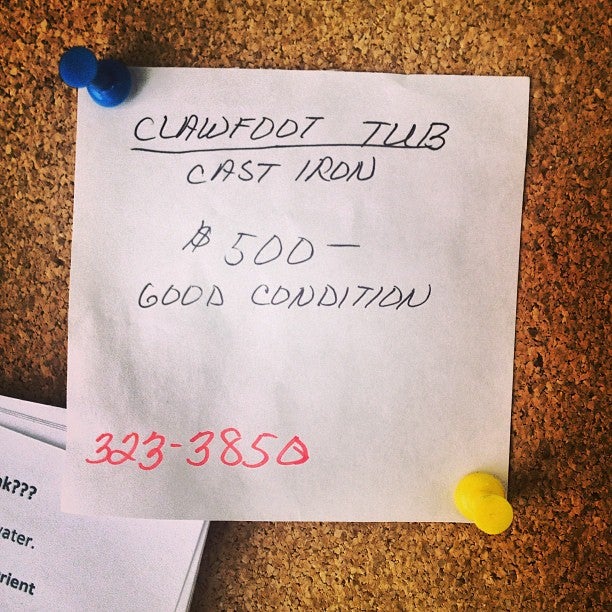 CLAWFOOT TUB
CAST IRON
$500—
GOOD CONDITION
323-3850
k???
ater.
rient